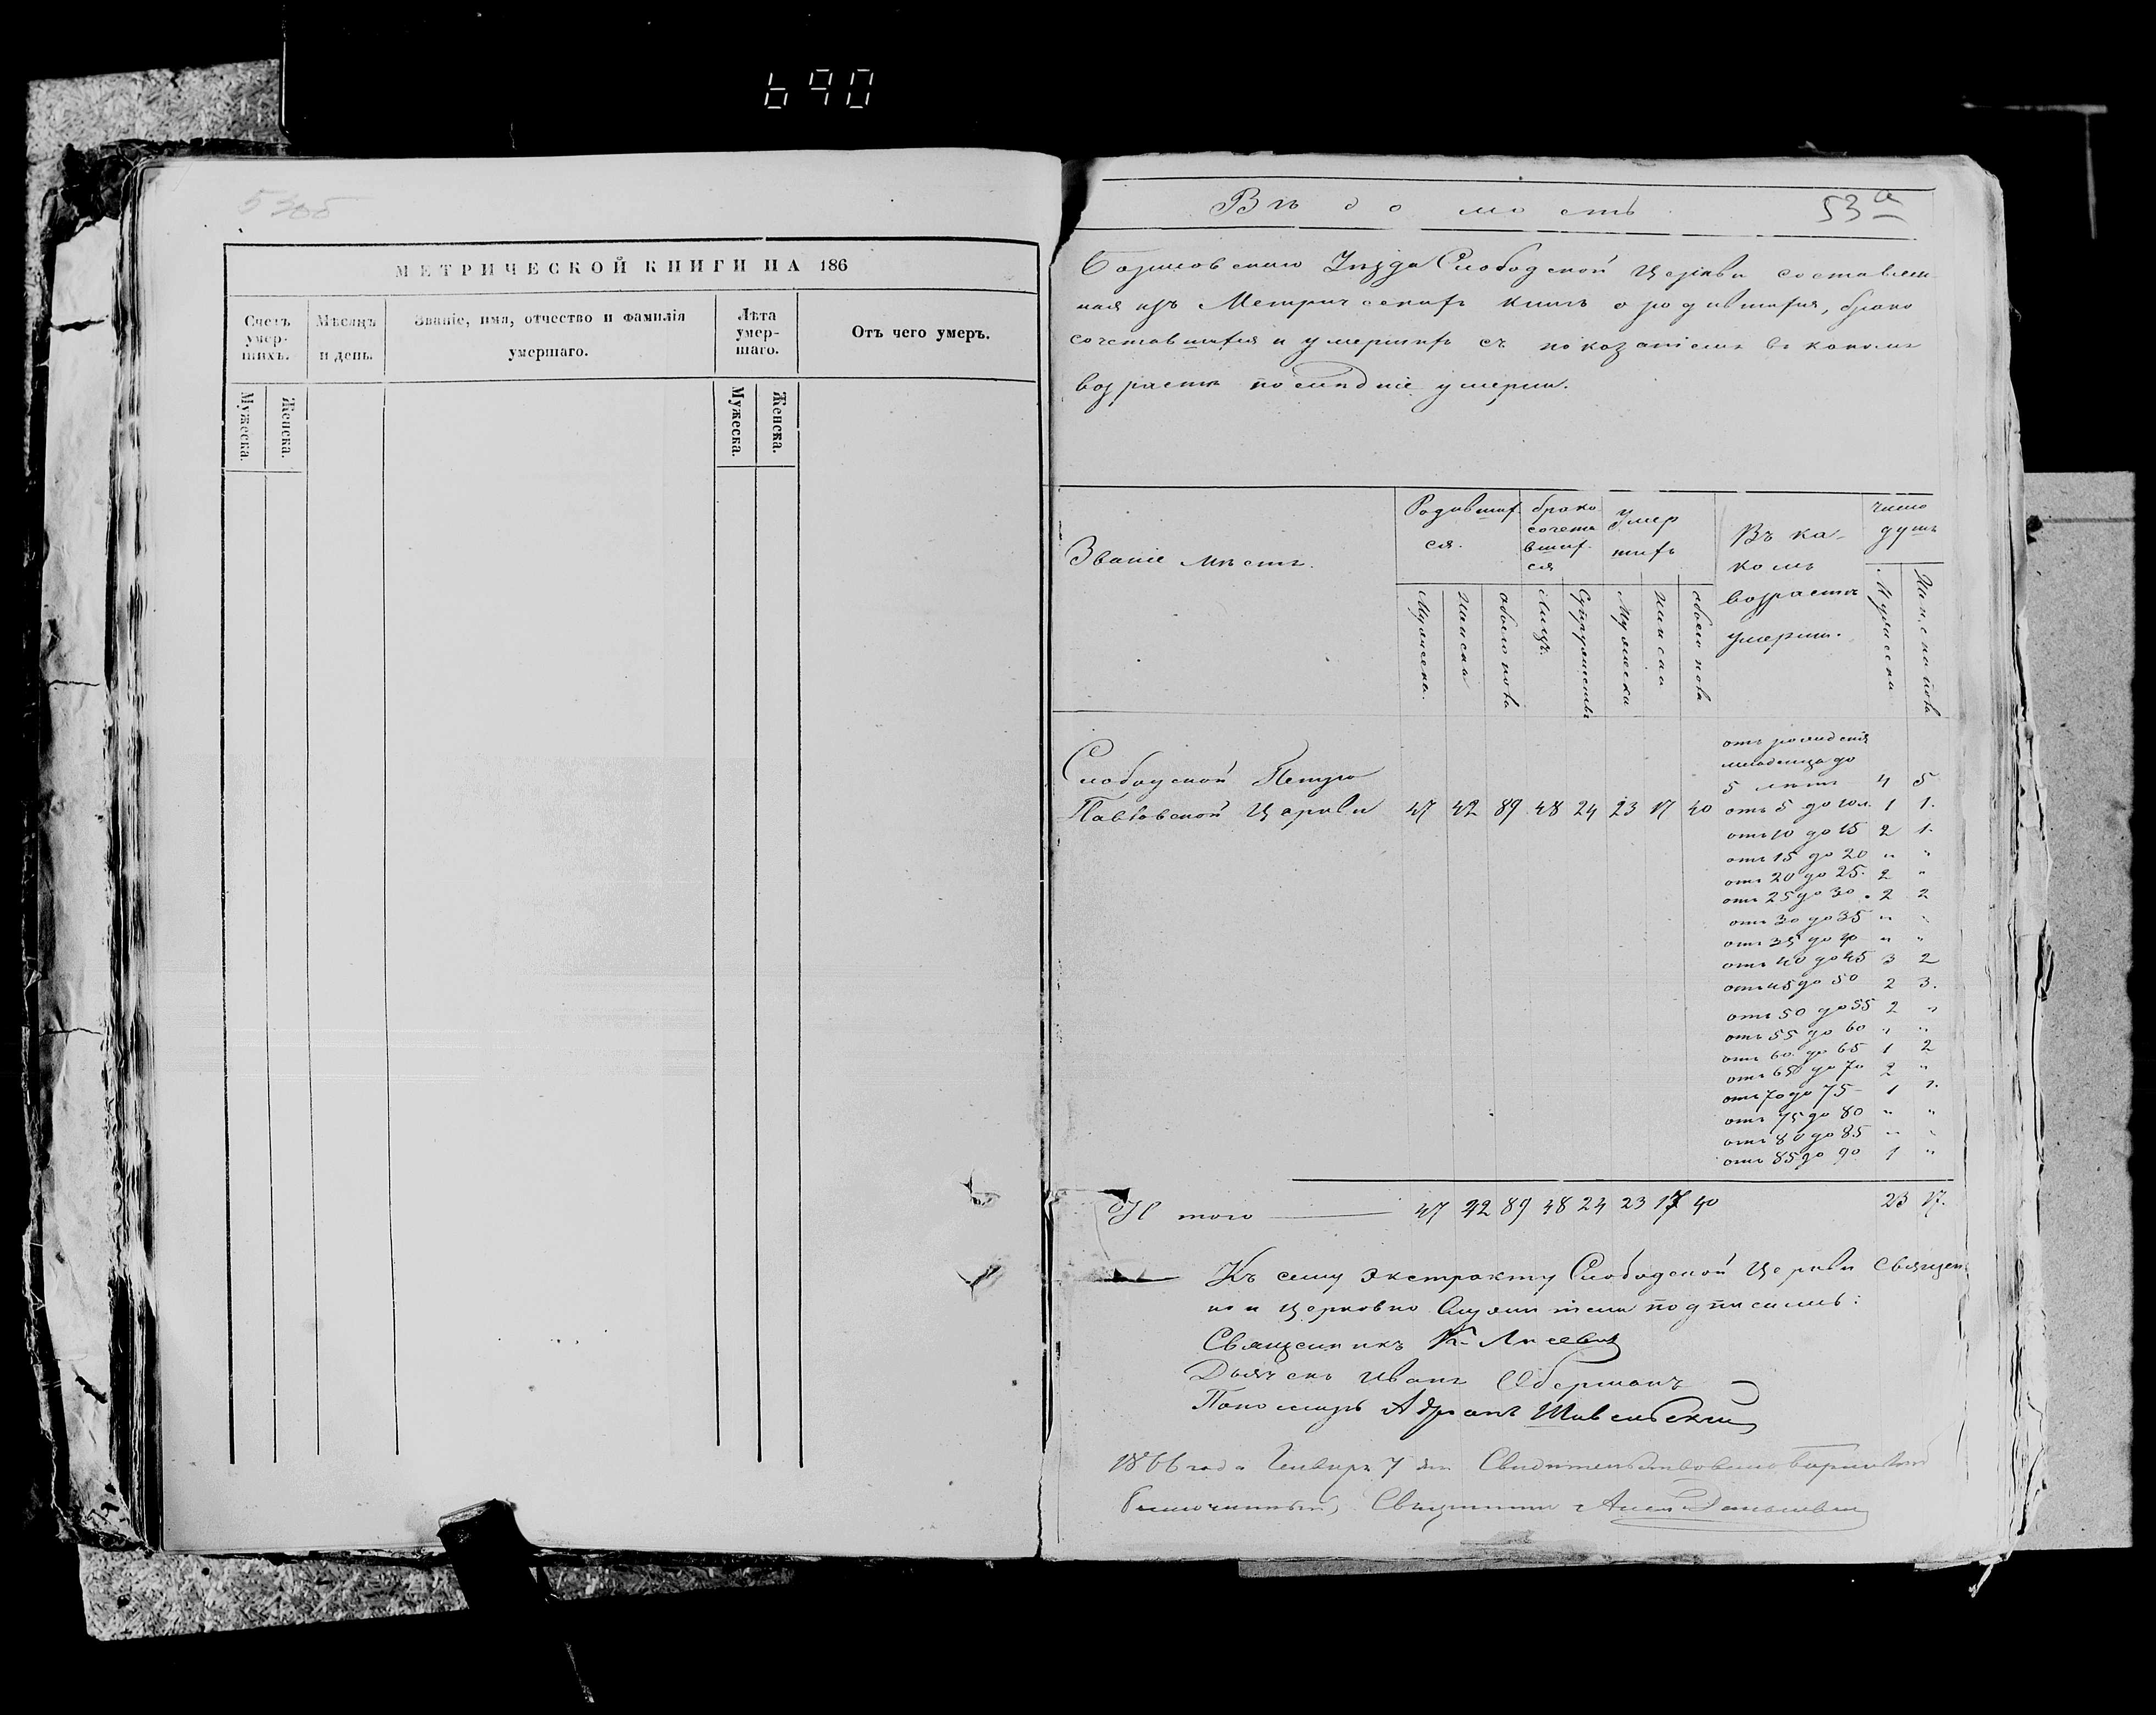 690
53об
МЕТРИЧЕСКОЙ КНИГИ НА 186
Счетъ умер-шихъ.
Мѣсяцъ и день.
Званіе, имя, отчество и фамилія умершаго.
Лѣта умер-шаго.
Отъ чего умеръ.
Мужеска.
Женска.
Мужеска.
Женска.
Вѣдомость
53а
Борисовскаго Уѣзда Слободской Церкви составлен-
ная изъ Метрическихъ книгъ о родившихся, брако
сочетавшихся и умершихъ съ показаніемъ въ какомъ
возрастѣ послѣдніе умерли.
Званіе мѣстъ.
Родивших ся.
брако сочета вших ся
Умер шихъ
Въ ка- комъ возрастѣ умерли.
число душъ
Мужеска.
Женска
обоего пола
Лицъ.
Супружествъ
Мужеска
Женска
обоего пола
Мужеска
Женска пола
отъ рожденія
младенца до
Слободской Петро
5 лѣтъ 4 5
Павловской Церкви 47 42 89 48 24 23 17 40 отъ 5 до 10 л. 1 1.
отъ 10 до 15 2 1.
отъ 15 до 20 " "
отъ 20 до 25. 2 "
отъ 25 до 30 . 2 2
отъ 30 до 35 " "
отъ 35 до 40 " "
отъ 40 до 45 3 2
отъ 45 до 50 2 3.
отъ 50 до 55 2 "
отъ 55 до 60 " "
отъ 60 до 65 1 2
отъ 65 до 70 2 "
отъ 70 до 75 1 1.
отъ 75 до 80 " "
отъ 80 до 85 " "
отъ 85 до 90 1 "
Итого 47 42 89 48 24 23 17 40 23 17.
Къ сему экстракту Слободской Церкви Священ
но и церковно служители подписались:
Священникъ К. Лисевичъ
Дьячекъ Иванъ Оберманъ
Пономарь Адріанъ Шавельскій
1866 года Генваря 7 дня Свидетельствовалъ Борисовскій
Благочинный, Священникъ